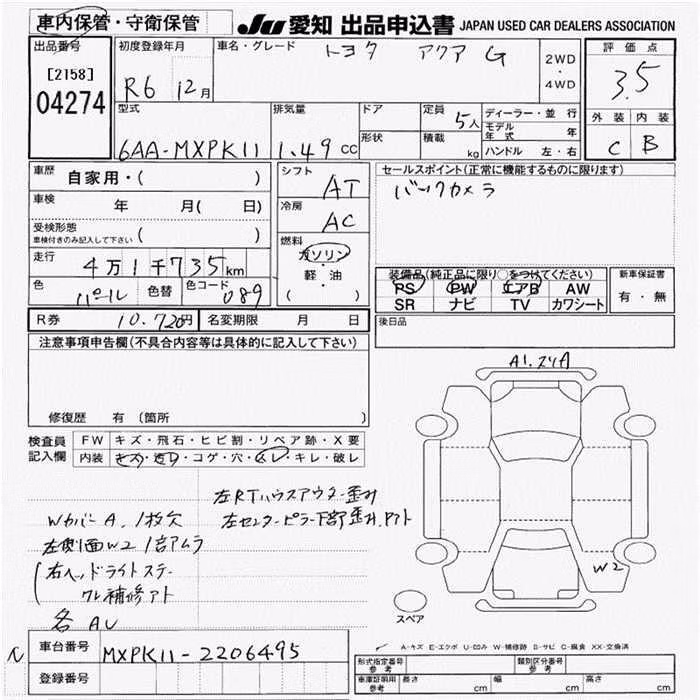 車内保管・守衛保管
JU 愛知 出品申込書 JAPAN USED CAR DEALERS ASSOCIATION
出品番号
[2158]
04274
初度登録年月
R6 12月
車名・グレード
トヨタ アクア G
2WD
・
4WD
評価点
3.5
外装 内装
C B
型式
6AA-MXPK11
排気量
1.49 cc
ドア
形状
定員
5人
積載
kg
ディーラー・並行
モデル年式 年
ハンドル 左・右
車歴
自家用・( )
車検
年 月( 日)
受検形態
車検付きのみ記入して下さい ( )
走行
4万1千735km
色
パール
色替
色コード
089
シフト
AT
冷房
AC
燃料
ガソリン
・
軽・油
( )
セールスポイント(正常に機能するものに限ります)
バックカメラ
装備品(純正品に限り○をつけてください)
PS PW エアB AW
SR ナビ TV カワシート
新車保証書
有・無
R券 10.720円 名変期限 月 日
後日品
注意事項申告欄(不具合内容等は具体的に記入して下さい)
修復歴 有(箇所 )
検査員記入欄
FW キズ・飛石・ヒビ割・リペア跡・X要
内装 キズ・汚れ・コゲ・穴・ムレ・キレ・破レ
左RTハウスアウター歪み
WカバーA.1枚欠
左センターピラー下部歪み.アト
左側面W2 1部アムラ
右ヘッドライトステー
クレ補修アト
各AU
A1.スリA
W2
スペア
A-キズ E-エクボ U-凹み W-補修跡 S-サビ C-腐食 XX-交換済
車台番号
MXPK11-2206495
登録番号
形式指定番号 参考
類別区分番号 参考
車庫証明用 参考
長さ cm 幅 cm 高さ cm